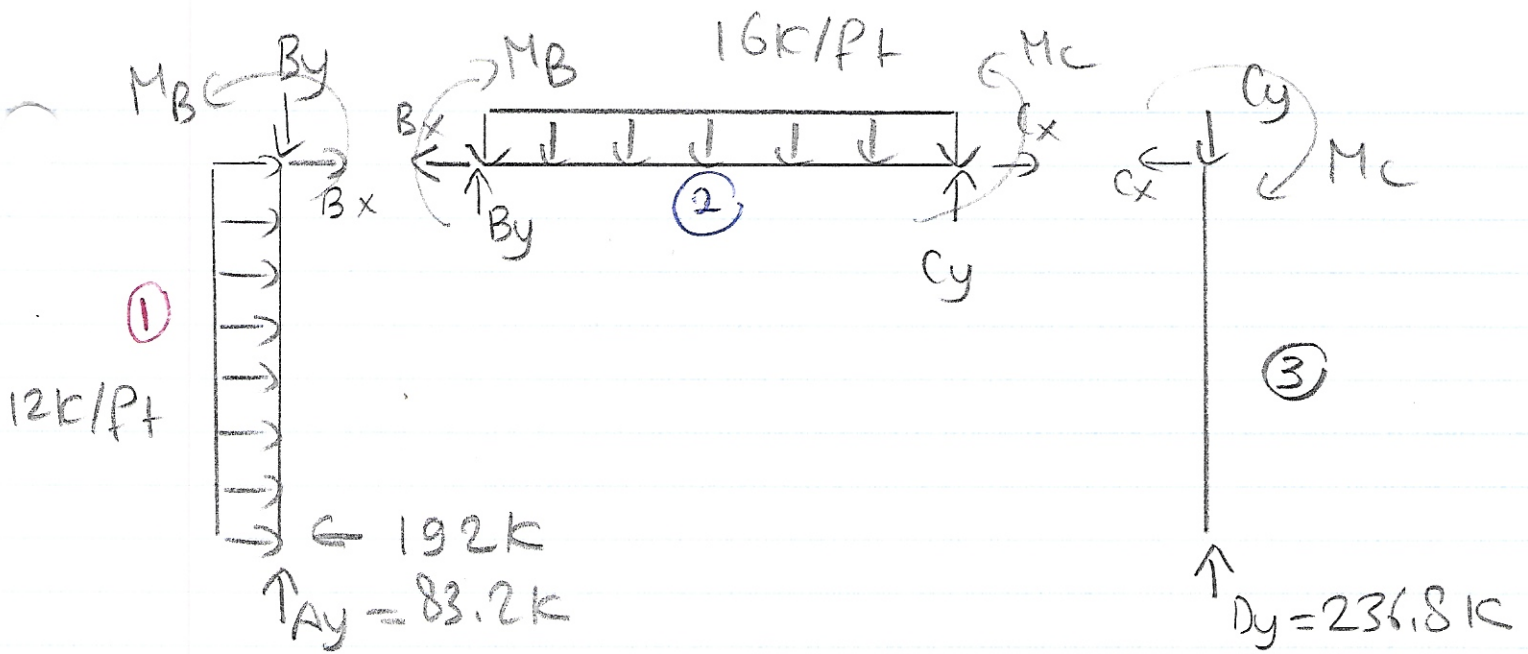 MB
By
Bx
1
12K/ft
← 192K
Ay = 83.2K
MB
16K/ft
Mc
Bx
Cx
By
2
Cy
Cy
Cx
Mc
3
Dy = 236.8K